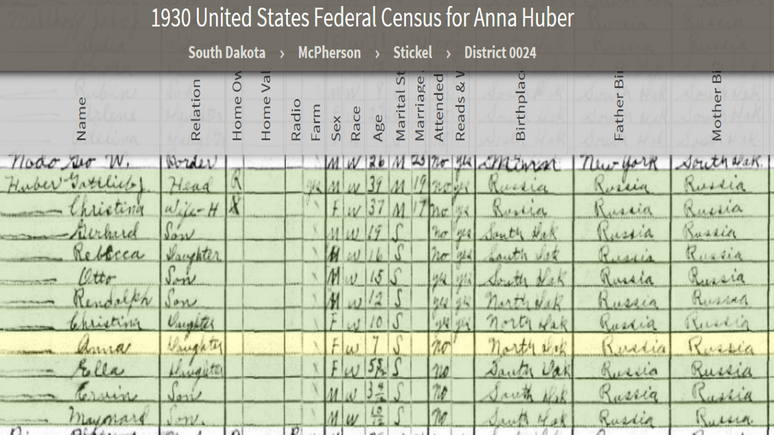 1930 United States Federal Census for Anna Huber
South Dakota › McPherson › Stickel › District 0024
Name Relation Home Ow Home Val Radio Farm Sex Race Age Marital St Marriage Attended Reads & W Birthplac Father Bi Mother Bi
Geo W. Border M W 26 M 23 no yes New-York South Dak.
Huber Gottlieb J. Head R yes M W 39 M 19 no yes Russia Russia Russia
Christina Wife-H F W 37 M 17 no yes Russia Russia Russia
Gerhard Son M W 19 S no yes South Dak Russia Russia
Rebecca Daughter W 16 S no yes South Dak Russia Russia
Otto Son M W 15 S yes yes South Dak Russia Russia
Rendolph Son M W 12 S yes yes North Dak Russia Russia
Christina Daughter F W 10 S yes yes North Dak Russia Russia
Anna Daughter F W 7 S no North Dak Russia Russia
Ella Daughter F W S no South Dak Russia Russia
Ervin Son M W S no South Dak Russia Russia
Maynard Son. M W S no South Dak Russia Russia